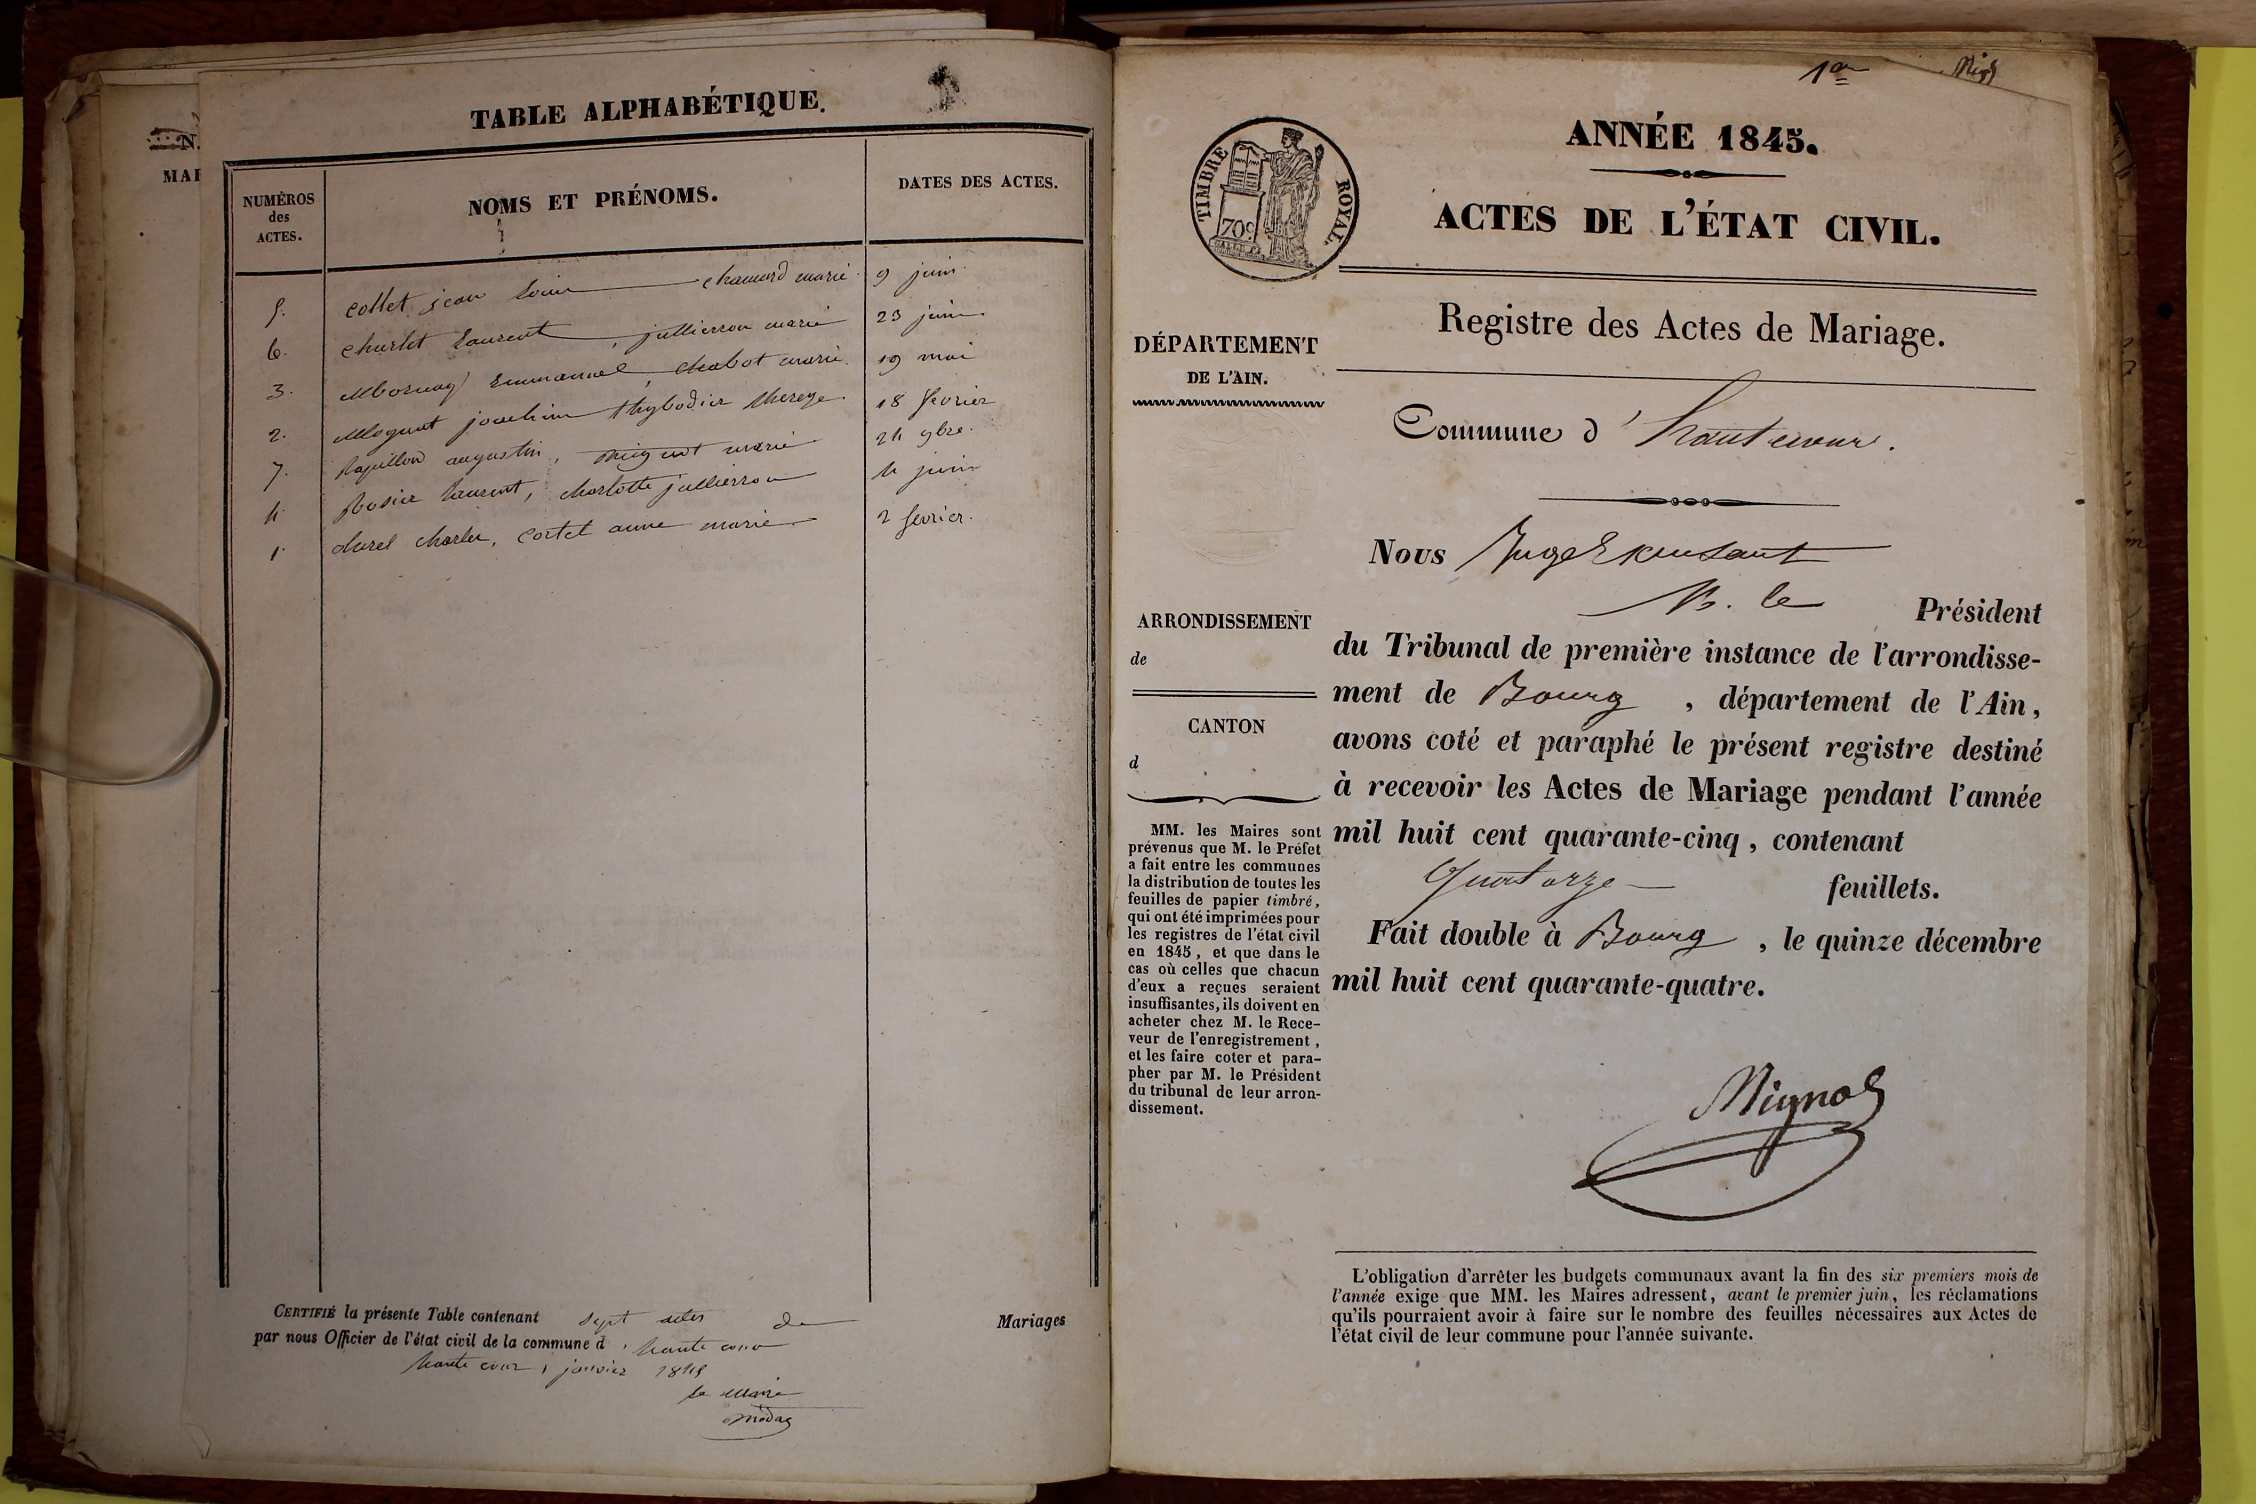 N.
MAI
TABLE ALPHABÉTIQUE.
NUMÉROS
des
ACTES.
NOMS ET PRÉNOMS.
DATES DES ACTES.
5. collet jean louis chanard marie 9 juin
6. charlet laurent, jullierron marie 23 juin
3. Mornay Emmanuel, chabot marie 19 mai
2. Moguet joachim thybodier thereze 18 fevrier
7. Papillon augustin, mignot marie 24 9bre.
4. Rosier laurent, charlotte jullierron 4 juin
1. charles, cortet anne marie 2 fevrier.
CERTIFIÉ la présente Table contenant sept actes de Mariages
par nous Officier de l'état civil de la commune d haute cour
haute cour 1 janvier 1845
le Maire
1er
ANNÉE 1845.
TIMBRE ROYAL.
70c
ACTES DE L'ÉTAT CIVIL.
Registre des Actes de Mariage.
DÉPARTEMENT
DE L'AIN.
Commune d' hautecour.
Nous Juge
p. le Président
du Tribunal de première instance de l'arrondisse-
ment de Bourg, département de l'Ain,
avons coté et paraphé le présent registre destiné
à recevoir les Actes de Mariage pendant l'année
mil huit cent quarante-cinq, contenant
Quatorze feuillets.
Fait double à Bourg, le quinze décembre
mil huit cent quarante-quatre.
ARRONDISSEMENT
de
CANTON
d
MM. les Maires sont
prévenus que M. le Préfet
a fait entre les communes
la distribution de toutes les
feuilles de papier timbré,
qui ont été imprimées pour
les registres de l'état civil
en 1845, et que dans le
cas où celles que chacun
d'eux a reçues seraient
insuffisantes, ils doivent en
acheter chez M. le Rece-
veur de l'enregistrement,
et les faire coter et para-
pher par M. le Président
du tribunal de leur arron-
dissement.
L'obligation d'arrêter les budgets communaux avant la fin des six premiers mois de
l'année exige que MM. les Maires adressent, avant le premier juin, les réclamations
qu'ils pourraient avoir à faire sur le nombre des feuilles nécessaires aux Actes de
l'état civil de leur commune pour l'année suivante.